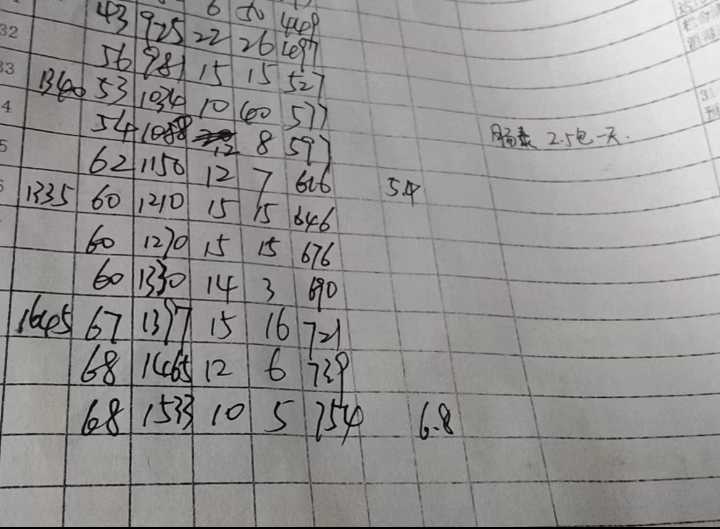 6 50 449
32 43 925 22 26 497
56 981 15 15 527
33 1340 53 1034 10 40 577
54 1088 12 8 597
62 1150 12 7 616 54
1335 60 1210 15 15 646
60 1270 15 15 676
60 1330 14 3 690
1645 67 1397 15 16 721
68 1465 12 6 739
68 1533 10 5 754 6.8
2.5包一天.